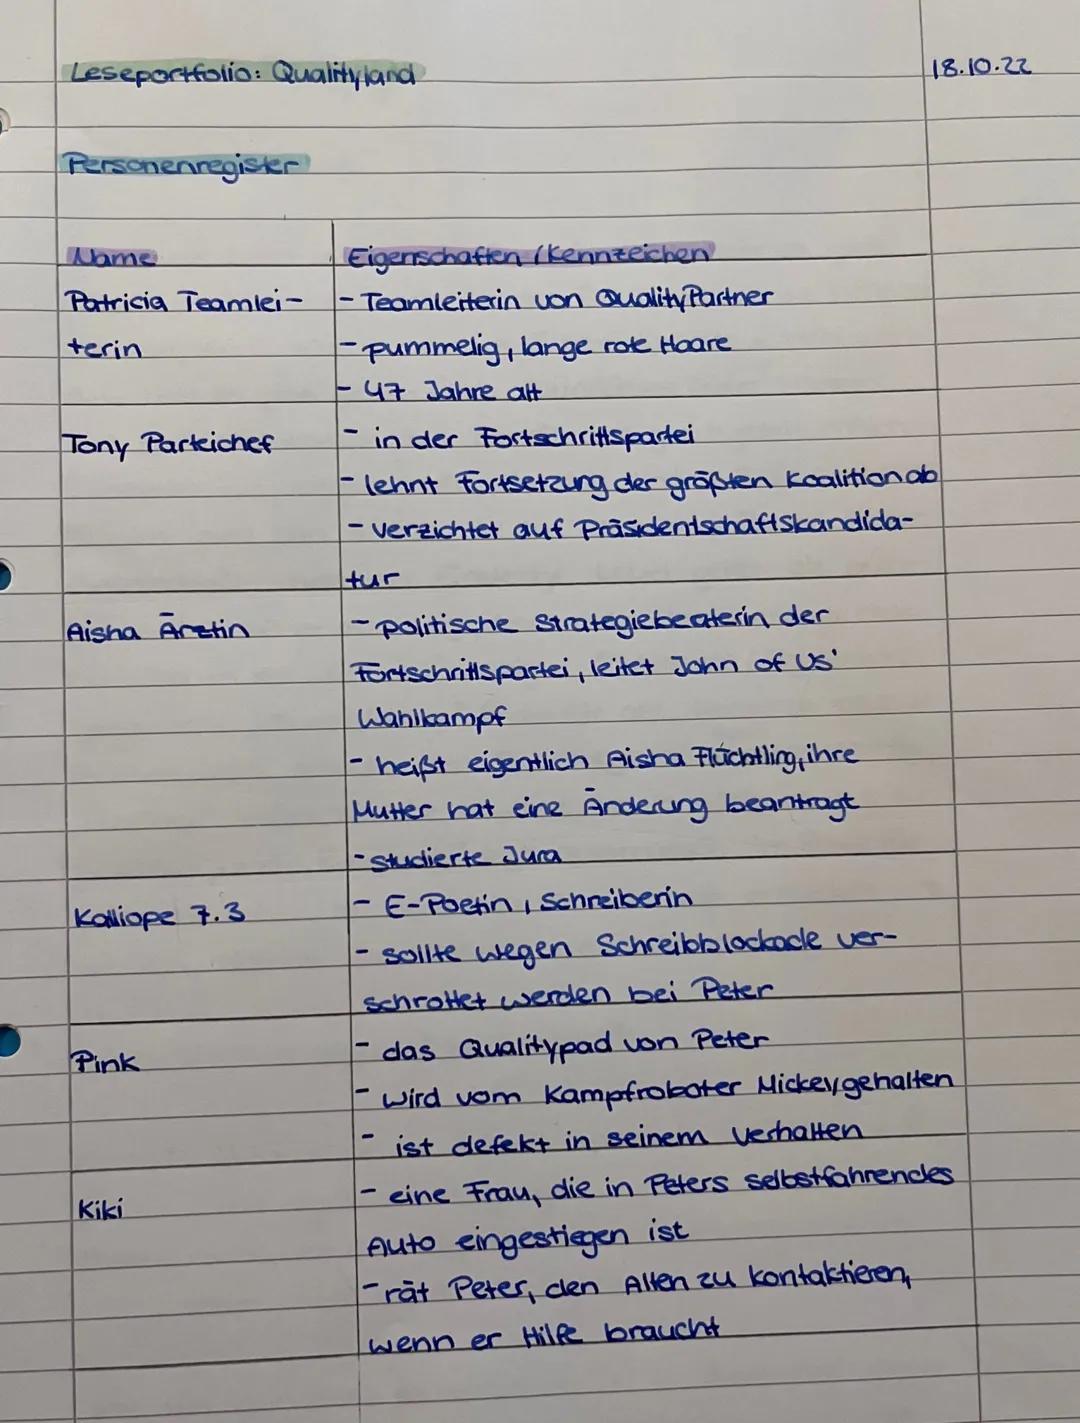 Leseportfolio: Qualityland 18.10.22
Personenregister
Name Eigenschaften / Kennzeichen
Patricia Teamlei- - Teamleiterin von QualityPartner
terin - pummelig, lange rote Haare
- 47 Jahre alt
Tony Parteichef - in der Fortschrittspartei
- lehnt Fortsetzung der größten Koalition ab
- verzichtet auf Präsidentschaftskandida-
tur
Aisha Ärztin - politische Strategiebeaterin der
Fortschrittspartei, leitet John of Us'
Wahlkampf
- heißt eigentlich Aisha Flüchtling, ihre
Mutter hat eine Änderung beantragt
- studierte Jura
Kalliope 7.3 - E-Poetin, Schreiberin
- sollte wegen Schreibblockade ver-
schrottet werden bei Peter
Pink - das Qualitypad von Peter
- wird vom Kampfroboter Mickey gehalten
- ist defekt in seinem Verhalten
Kiki - eine Frau, die in Peters selbstfahrendes
Auto eingestiegen ist
- rät Peter, den Alten zu kontaktieren,
wenn er Hilfe braucht